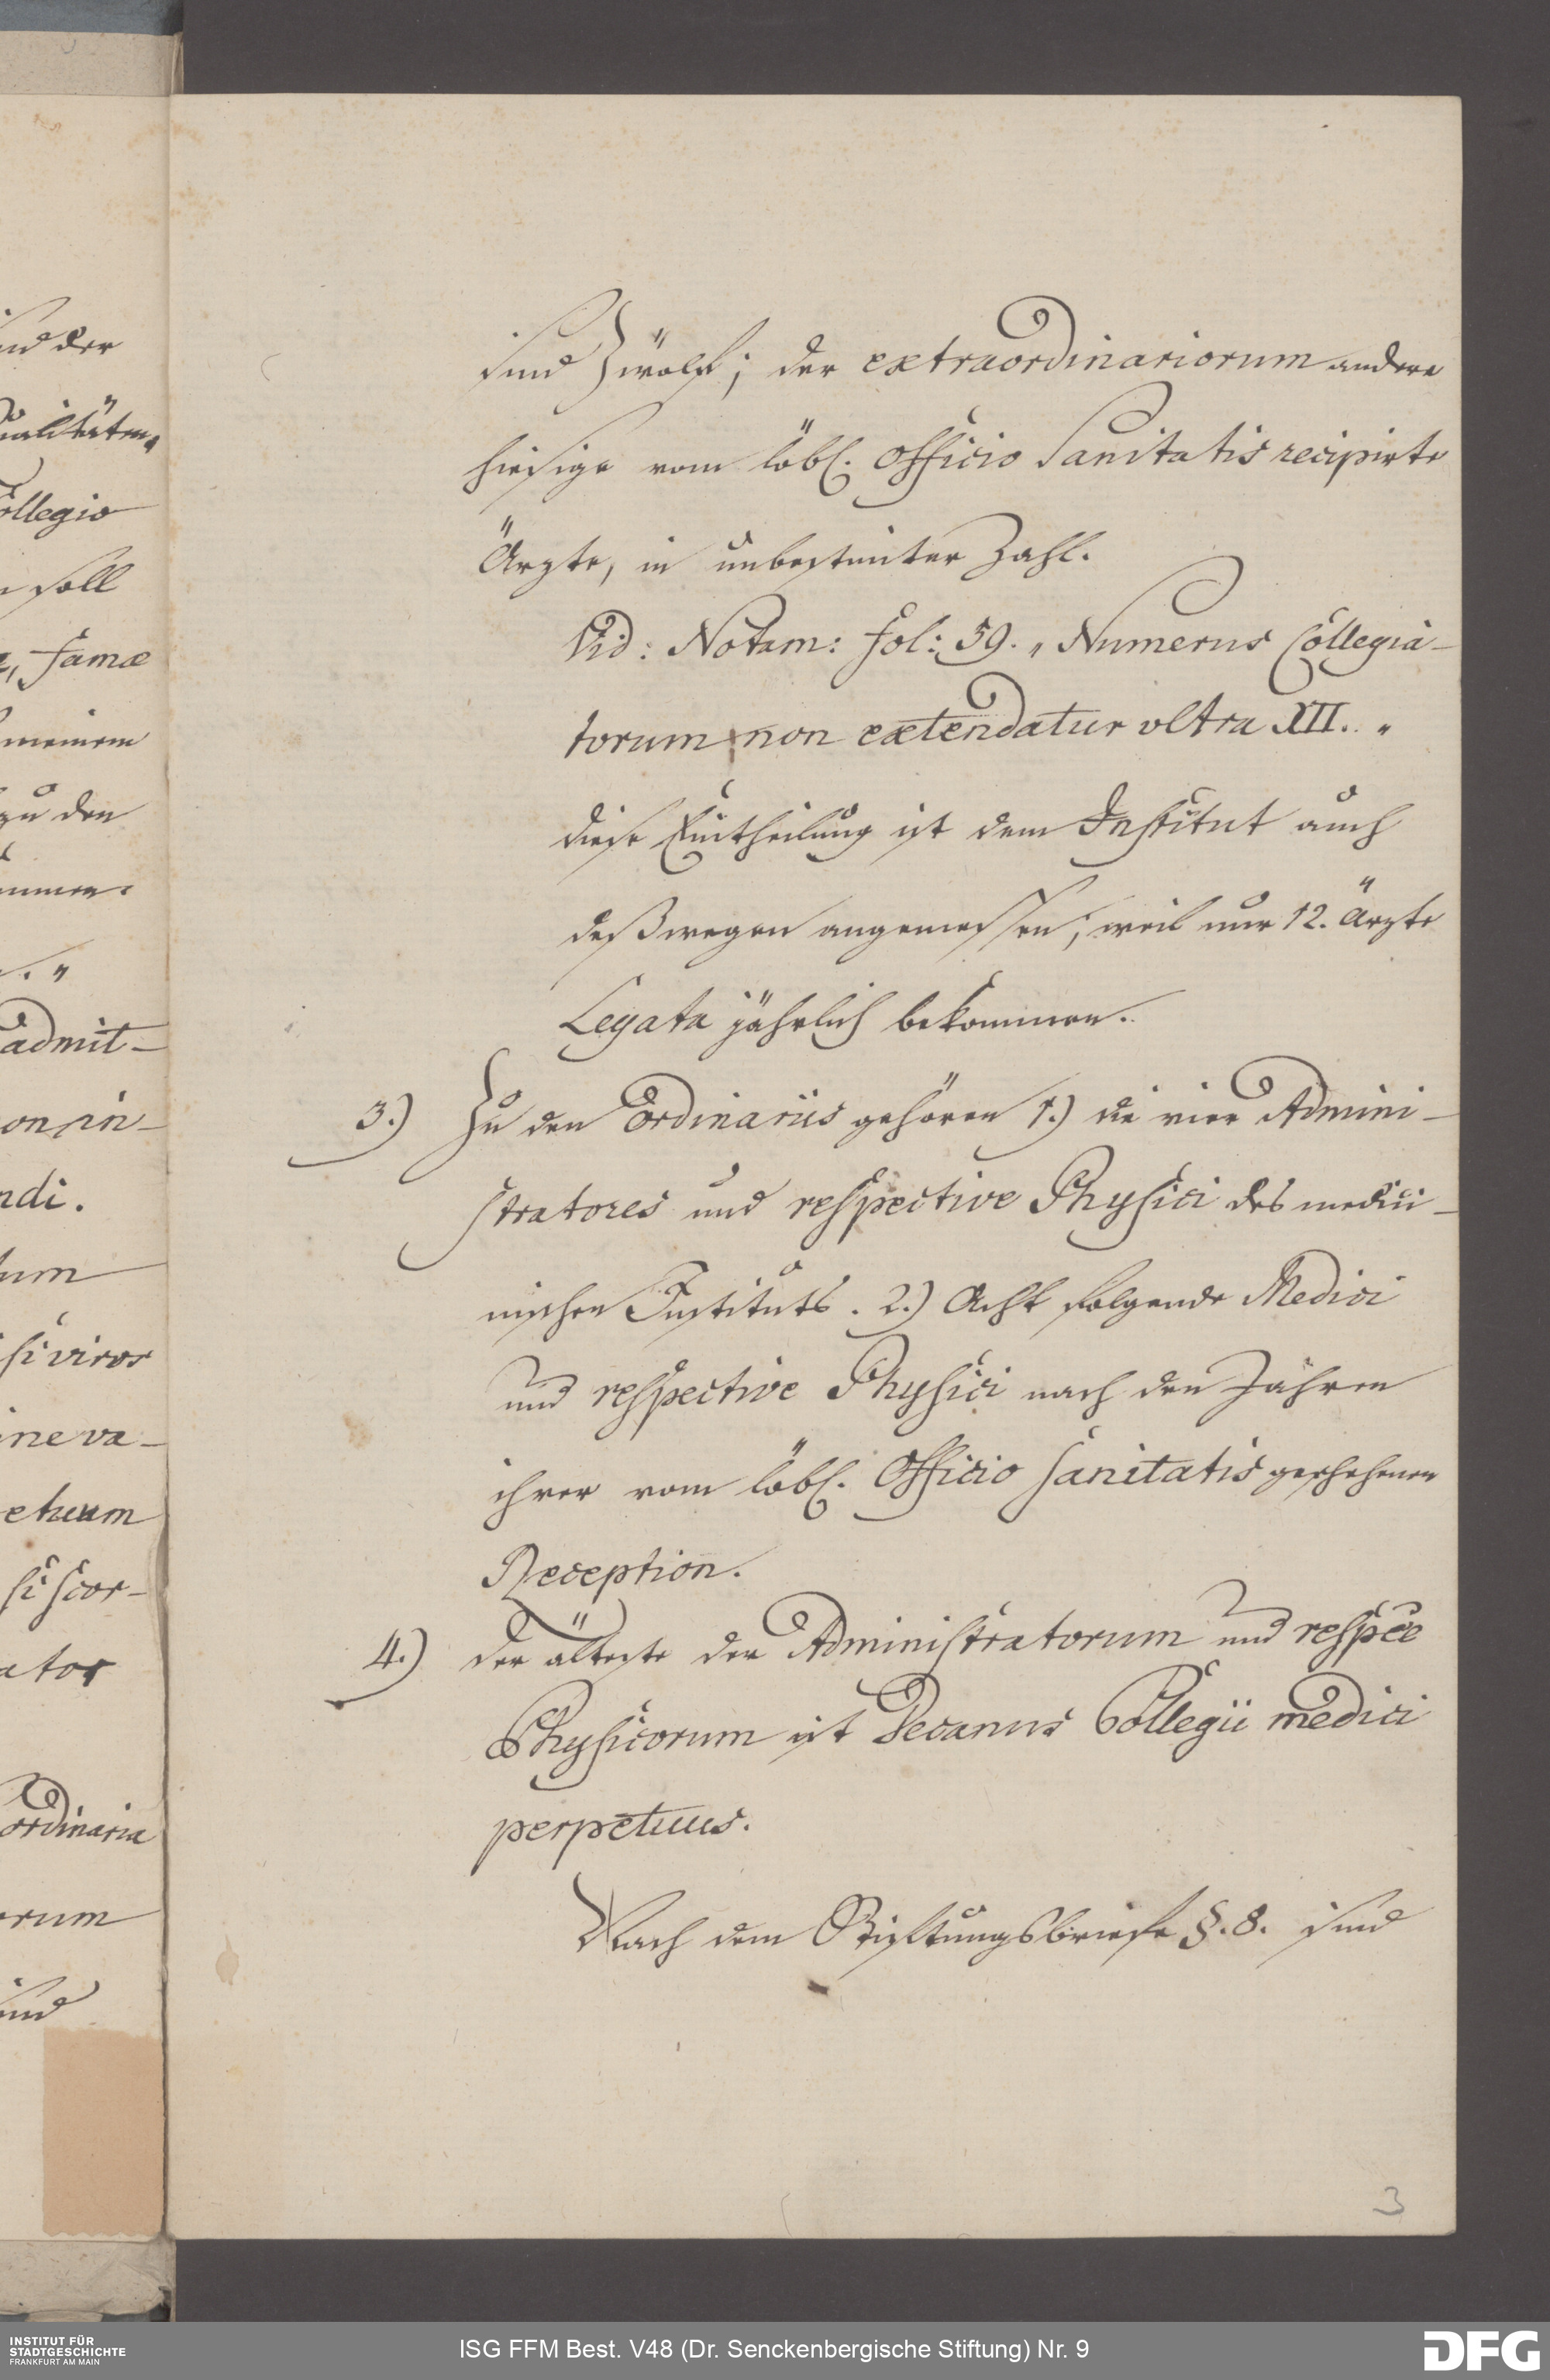 sind Zwölf; der extraordinariorum andere
hiesige vom löbl. Officio Sanitatis recipirte
Ärzte, in unbestimter Zahl.
Vid: Notam: fol: 59. „ Numerus Collegia-
torum non extendatur vltra XII. "
diese Eintheilung ist dem Institut auch
deßwegen angemessen, weil nur 12. Ärzte
Legata jährlich bekommen.
3.) Zu den Ordinariis gehören 1.) die vier Admini-
stratores und respective Physici des medici-
nischen Instituts. 2.) Acht folgende Medici
und respective Physici nach den Jahren
ihrer vom löbl. Officio Sanitatis geschehenen
Reception.
4.) der älteste der Administratorum und respve
Physicorum ist Decanus Collegii medici
perpetuus.
Nach dem Stiftungsbriefe §. 8. sind
3
und der
Qualitäten,
Collegio
soll
famæ
zu den
admit-
non in-
ndi.
tum
si viros
ne va-
si scor-
ator
ordinaria
orum
sind
INSTITUT FÜR
STADTGESCHICHTE
FRANKFURT AM MAIN
ISG FFM Best. V48 (Dr. Senckenbergische Stiftung) Nr. 9
DFG